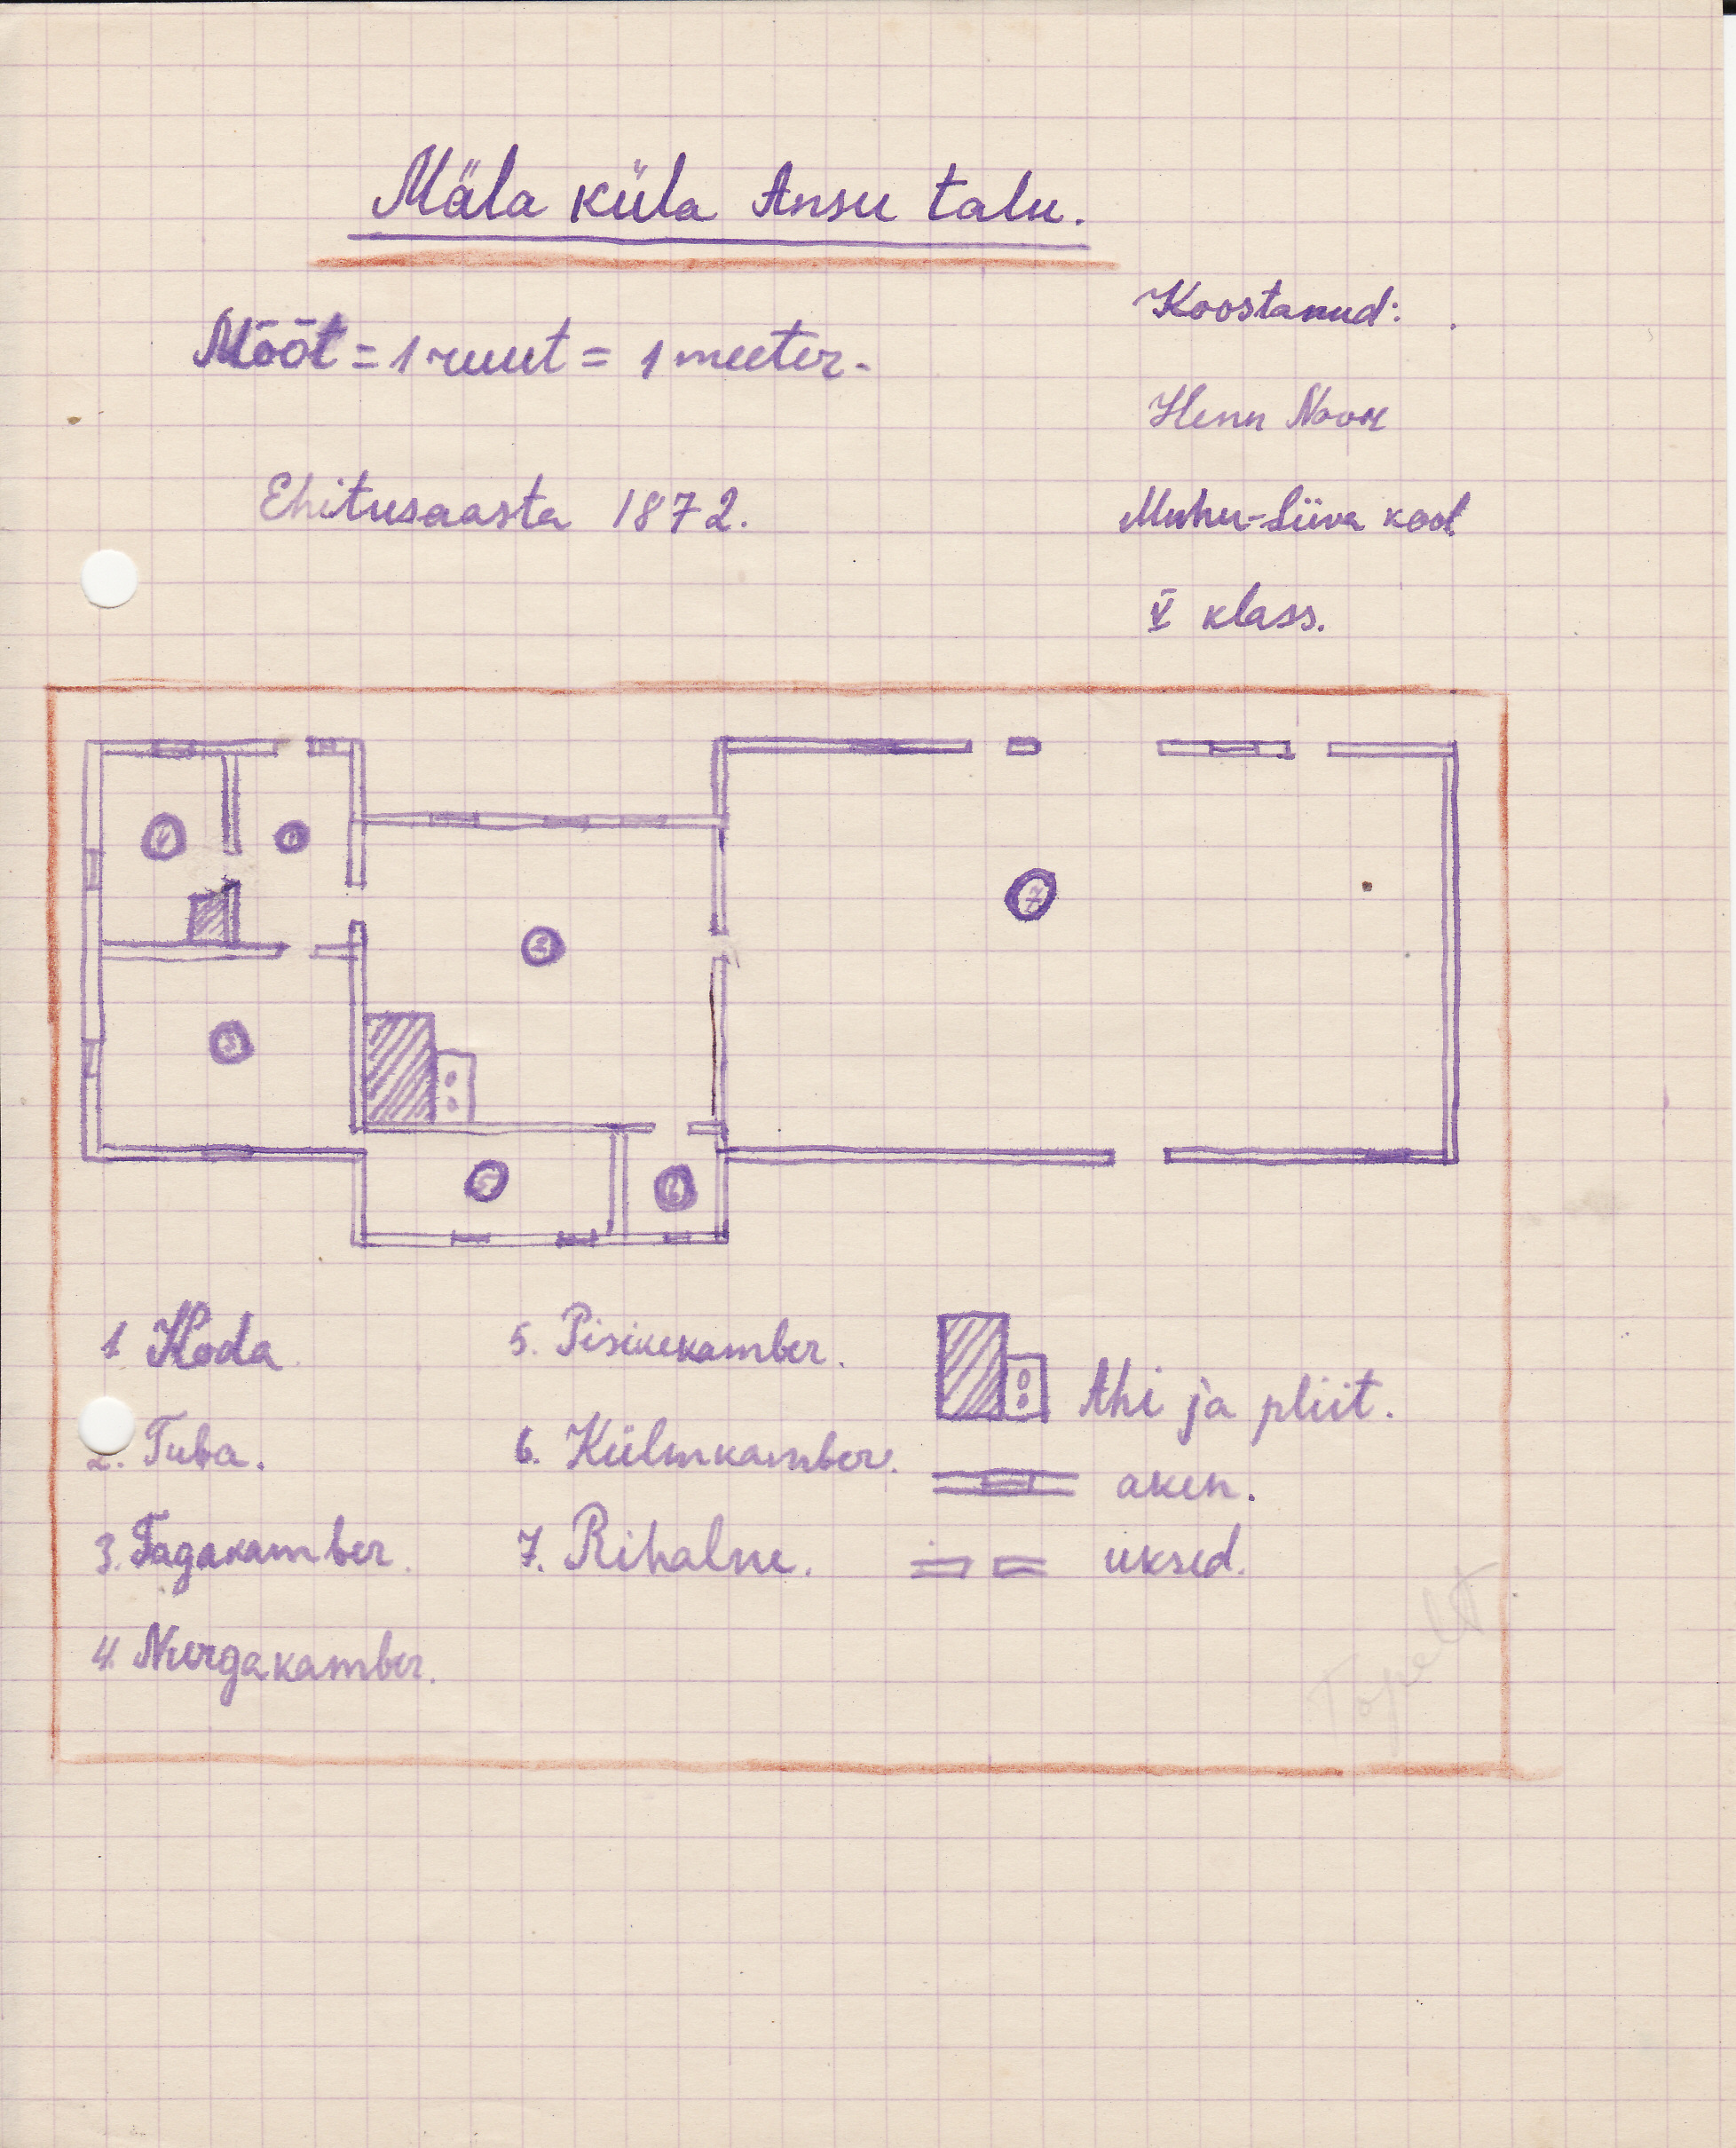 Mäla küla Ansu talu.
Mõõt = 1 ruut = 1 meeter.
Ehitusaasta 1872.
Koostanud:
Henn Noor
Muhu-Liiva kool
V klass.
4
1
2
7
3
5
6
1 Koda
2. Tuba.
3. Tagakamber.
4. Nurgakamber.
5. Pisikekamber.
6. Külmkamber.
7. Rihalne.
Ahi ja pliit.
aken.
uksed.
Topelt